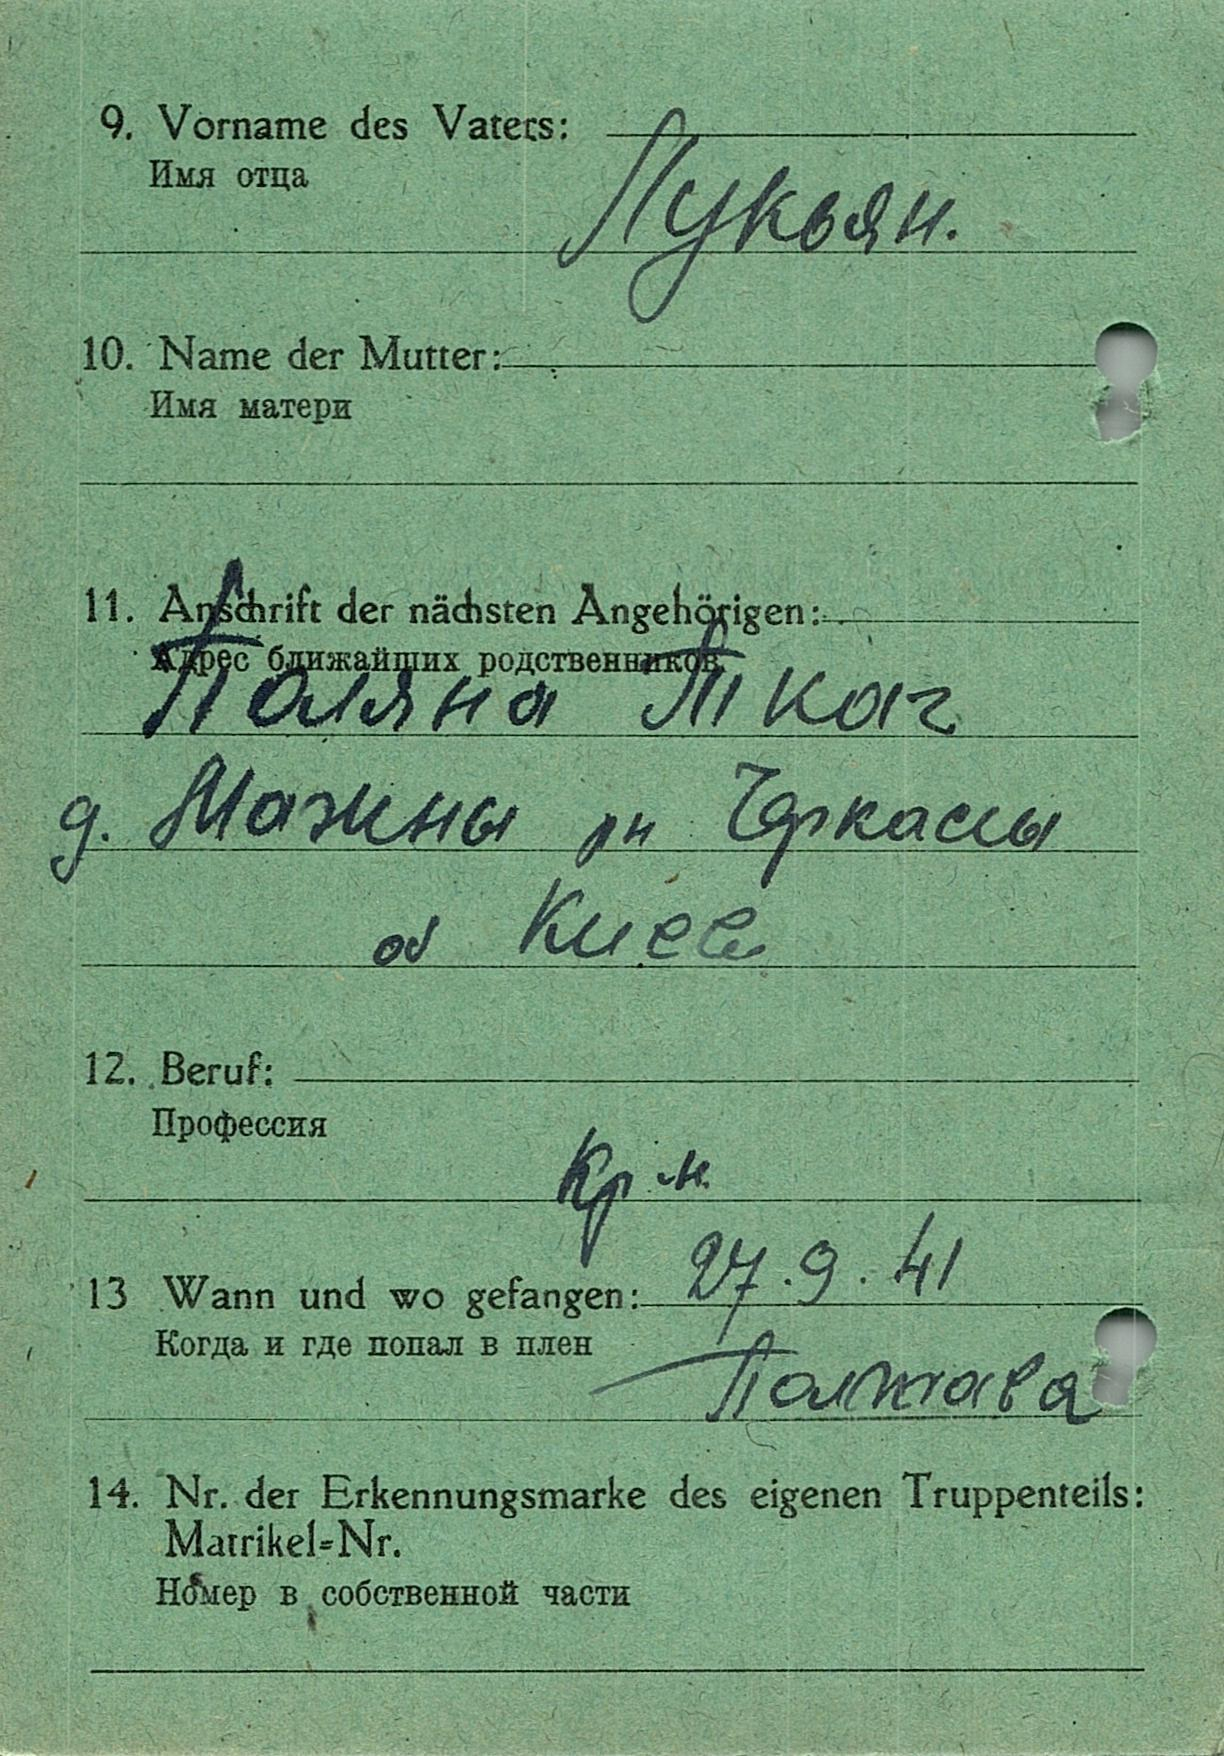 9. Vorname des Vaters:
Имя отца
Лукьян.
10. Name der Mutter:
Имя матери
11. Anschrift der nächsten Angehörigen:
Адрес ближайших родственников
Паляна Ткач
д. Мажины рн Черкассы
об Киев
12. Beruf:
Профессия
Кр-н.
13 Wann und wo gefangen: 27.9.41
Когда и где попал в плен
Полтава
14. Nr. der Erkennungsmarke des eigenen Truppenteils:
Matrikel=Nr.
Номер в собственной части